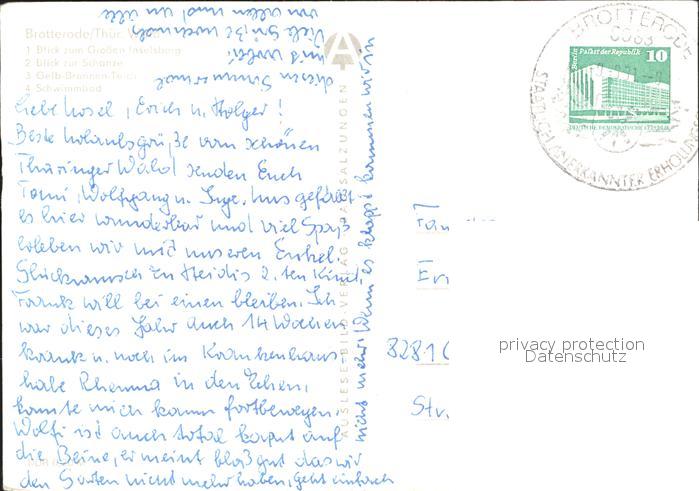 Brotterode/Thür. W
1 Blick zum Großen Inselsberg
2 Blick zur Schanze
3 Gelb-Brunnen-Teich
4 Schwimmbad
Liebe Rosel, Erich u. Holger!
Beste Urlaubsgrüße vom schönen
Thüringer Wald senden Euch
Tomi, Wolfgang u. Inge. Uns gefällt
es hier wunderbar und viel Spaß
erleben wir mit unseren Enkel.
Glückwunsch zu Heidis 2. ten Kind,
Frank will bei einen bleiben. Ich
war dieses Jahr auch 14 Wochen
krank u. noch im Krankenhaus
habe Rheuma in den Zehen,
konnte mich kaum fortbewegen.
Wolfi ist auch total kaput auf
die Beine, er meint bloß gut das wir
den Garten nicht mehr haben, geht einfach
nicht mehr. Wenn es klappt kommen wir in
diesen Sommer mal
mit vorbei
Viele Grüße nochmals
von allen und an alle
AUSLESE-BILD-VERLAG BAD SALZUNGEN
BROTTERODE
STAATL. ANERKANNTER ERHOLUNGS
Berlin, Palast der Republik
10
DEUTSCHE DEMOKRATISCHE REPUBLIK
Fam
Eri
8281
Str.
privacy protection
Datenschutz